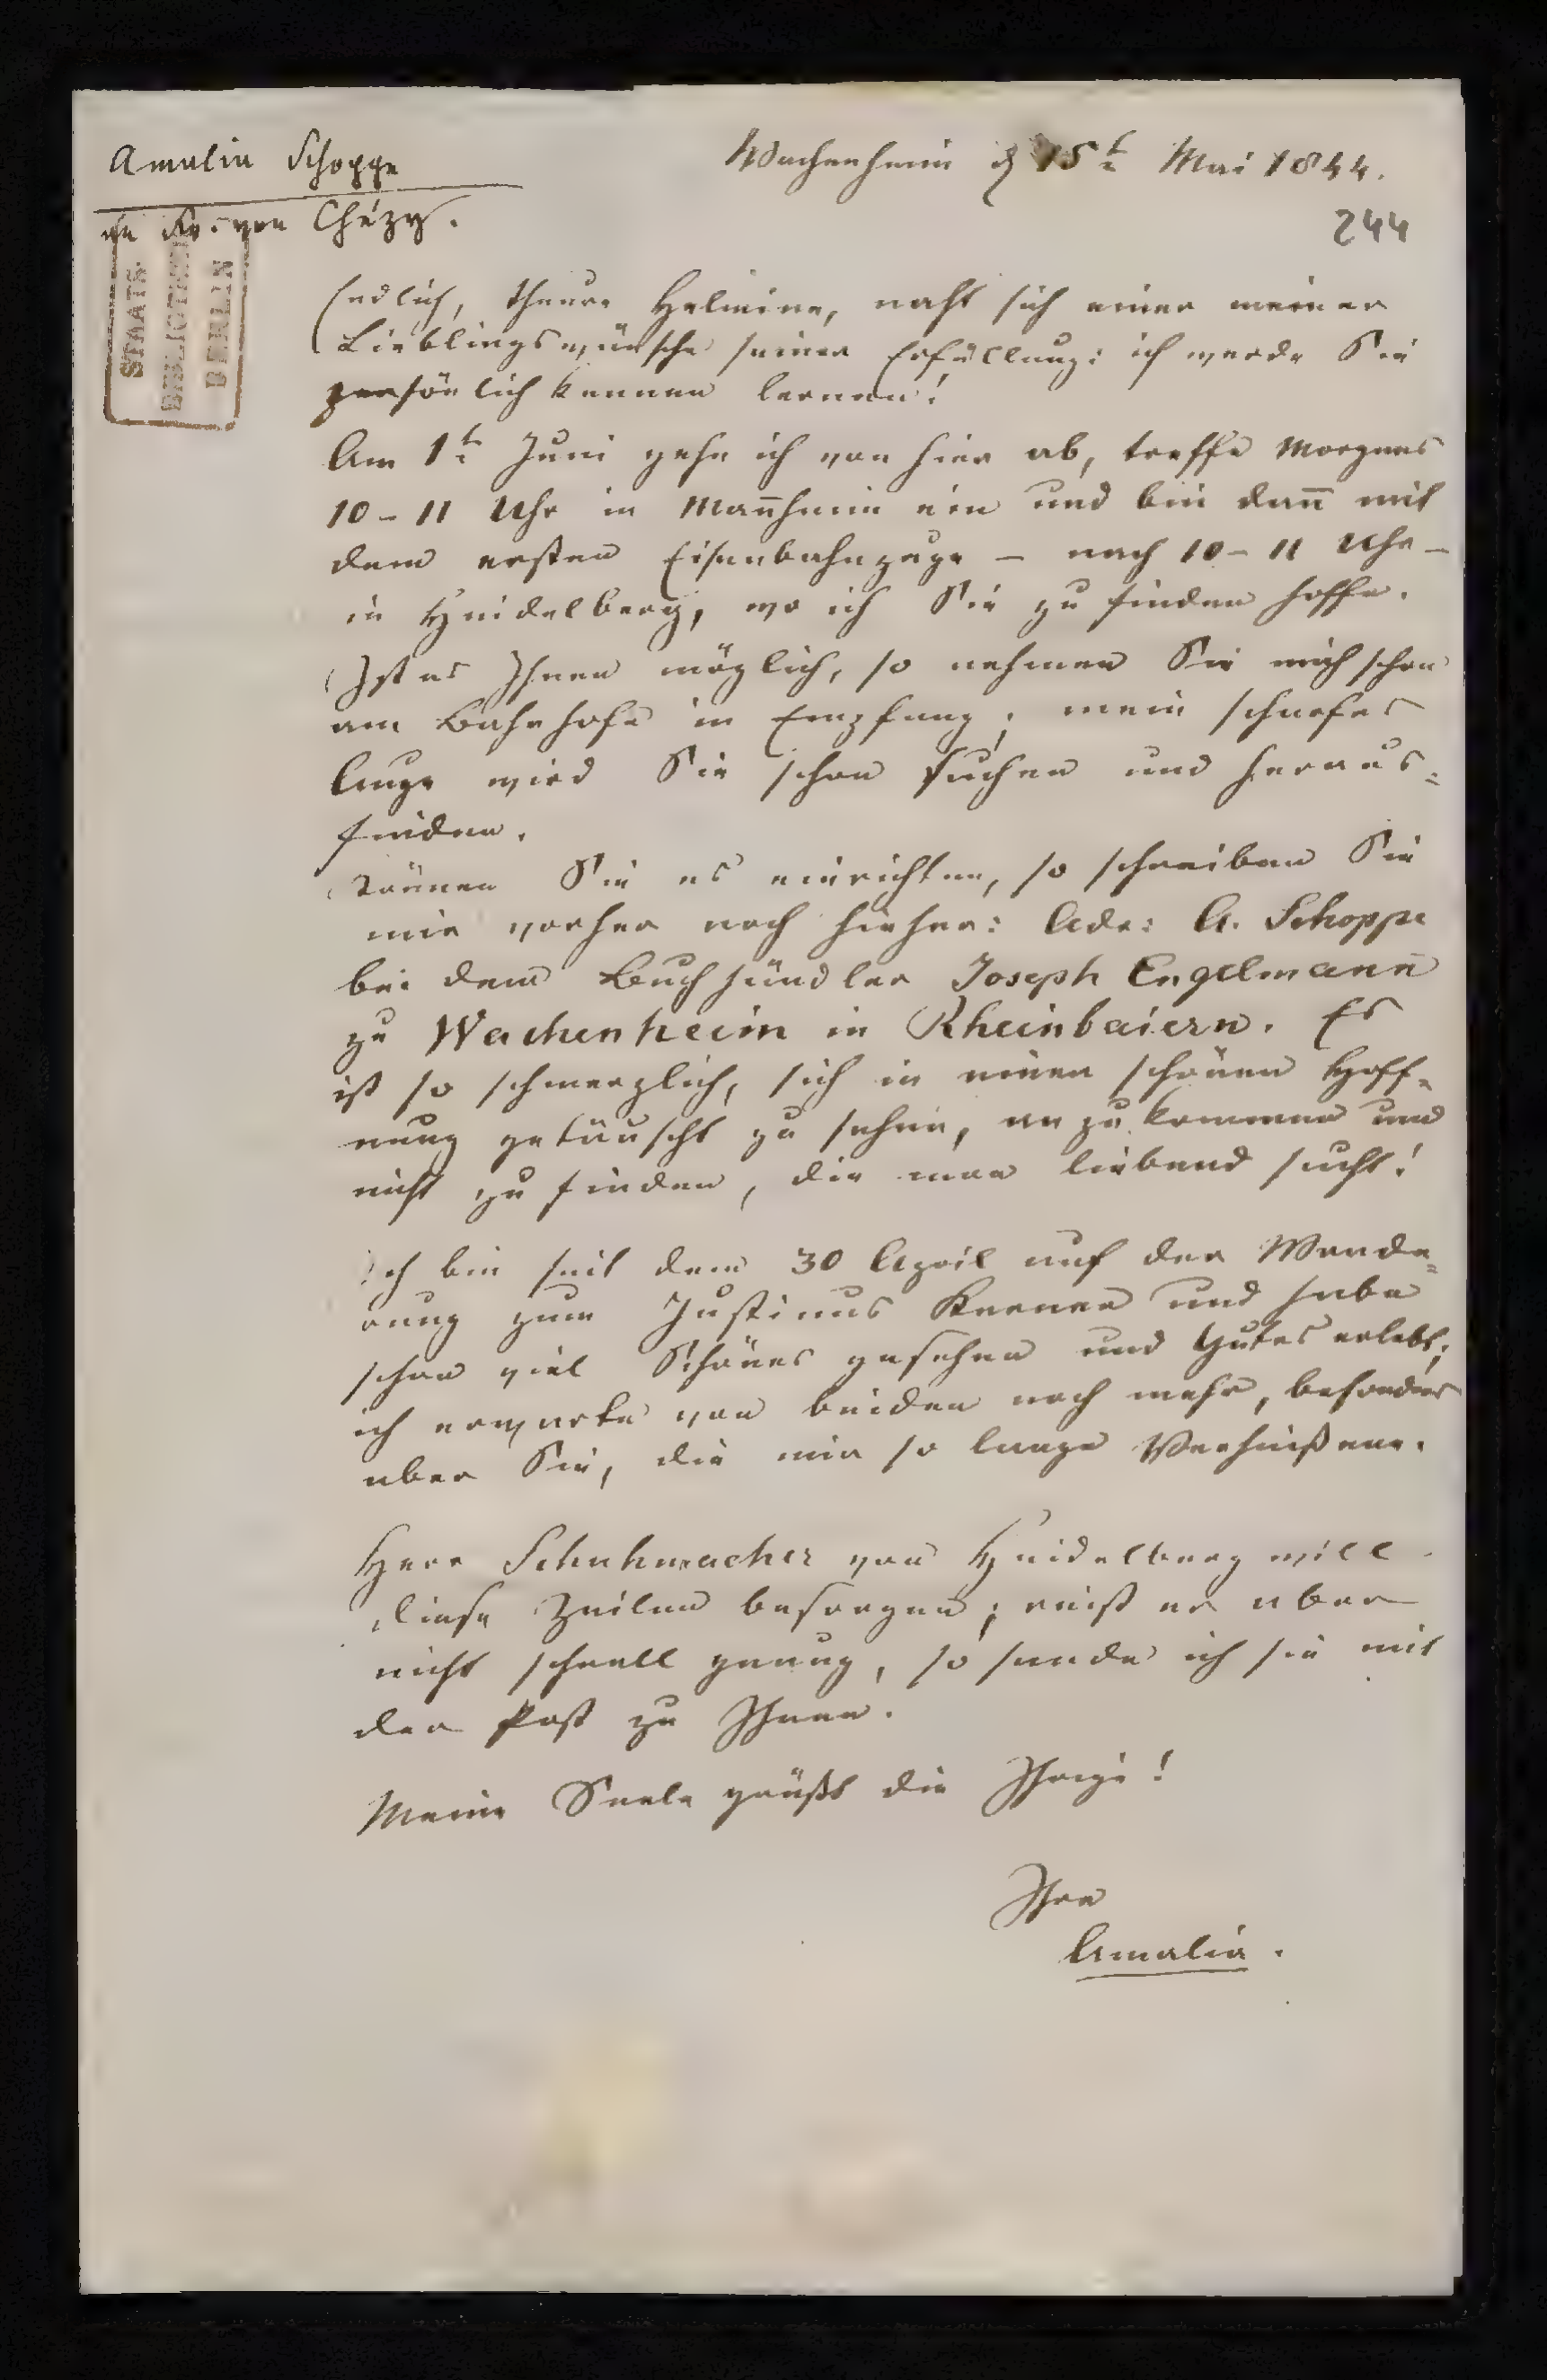 Amalia Schoppe
an Fr. von Chézy.
Wachenheim d 15t Mai 1844.
244
STAATS-
BIBLIOTHEK
BERLIN
Endlich, theure Helmina, naht sich einer meiner
Lieblingswünsche seiner Erfüllung: ich werde Sie
persönlich kennen lernen!
Am 1t Juni gehe ich von hier ab, treffe Morgens
10-11 Uhr in Man̄heim ein und bin dan̄ mit
dem ersten Eisenbahnzuge – nach 10-11 Uhr –
in Heidelberg, wo ich Sie zu finden hoffe.
Ist es Ihnen möglich, so nehmen Sie mich schon
am Bahnhofe in Empfang; mein scharfes
Auge wird Sie schon suchen und heraus=
finden.
Können Sie es einrichten, so schreiben Sie
mir vorher noch hieher: Adr: A. Schoppe
bei dem Buchhändler Joseph Engelmann
zu Wachenheim in Rheinbaiern. Es
ist so schmerzlich, sich in einer schönen Hoff=
nung getäuscht zu sehen, anzukommen und
nicht zu finden, die man liebend sucht!
Ich bin seit dem 30 April auf der Wande=
rung zum Justinus Kerner und habe
schon viel Schönes gesehen und Gutes erlebt;
ich erwarte von beiden noch mehr, besonders
aber Sie, die mir so lange Verheißene.
Herr Schuhmacher von Heidelberg will
diese Zeilen besorgen; reist er aber
nicht schnell genug, so sende ich sie mit
der Post zu Ihnen.
Meine Seele grüßt die Ihrige!
Ihre
Amalia.